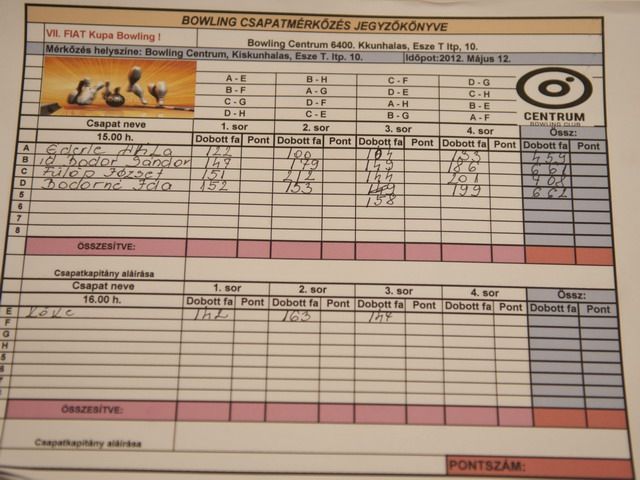 BOWLING CSAPATMÉRKŐZÉS JEGYZŐKÖNYVE
VII. FIAT Kupa Bowling !
Bowling Centrum 6400. Kkunhalas, Esze T ltp, 10.
Mérkőzés helyszíne: Bowling Centrum, Kiskunhalas, Esze T. ltp. 10. Időpot:2012. Május 12.
A - E B - H C - F D - G
B - F A - G D - E C - H
C - G D - F A - H B - E
D - H C - E B - G A - F
CENTRUM
BOWLING CLUB
Csapat neve 1. sor 2. sor 3. sor 4. sor Össz:
15.00 h. Dobott fa Pont Dobott fa Pont Dobott fa Pont Dobott fa Pont Dobott fa Pont
A Ederle Attila 122 100 104 133 459
B id Bodor Sándor 147 179 149 186 661
C Fülöp József 151 212 144 201
D Bodorné Ida 152 153 199 662
5 158
6
7
8
ÖSSZESÍTVE:
Csapatkapitány aláírása
Csapat neve 1. sor 2. sor 3. sor 4. sor Össz:
16.00 h. Dobott fa Pont Dobott fa Pont Dobott fa Pont Dobott fa Pont Dobott fa Pont
E 142 163 144
F
G
H
5
6
7
ÖSSZESÍTVE:
Csapatkapitány aláírása
PONTSZÁM: